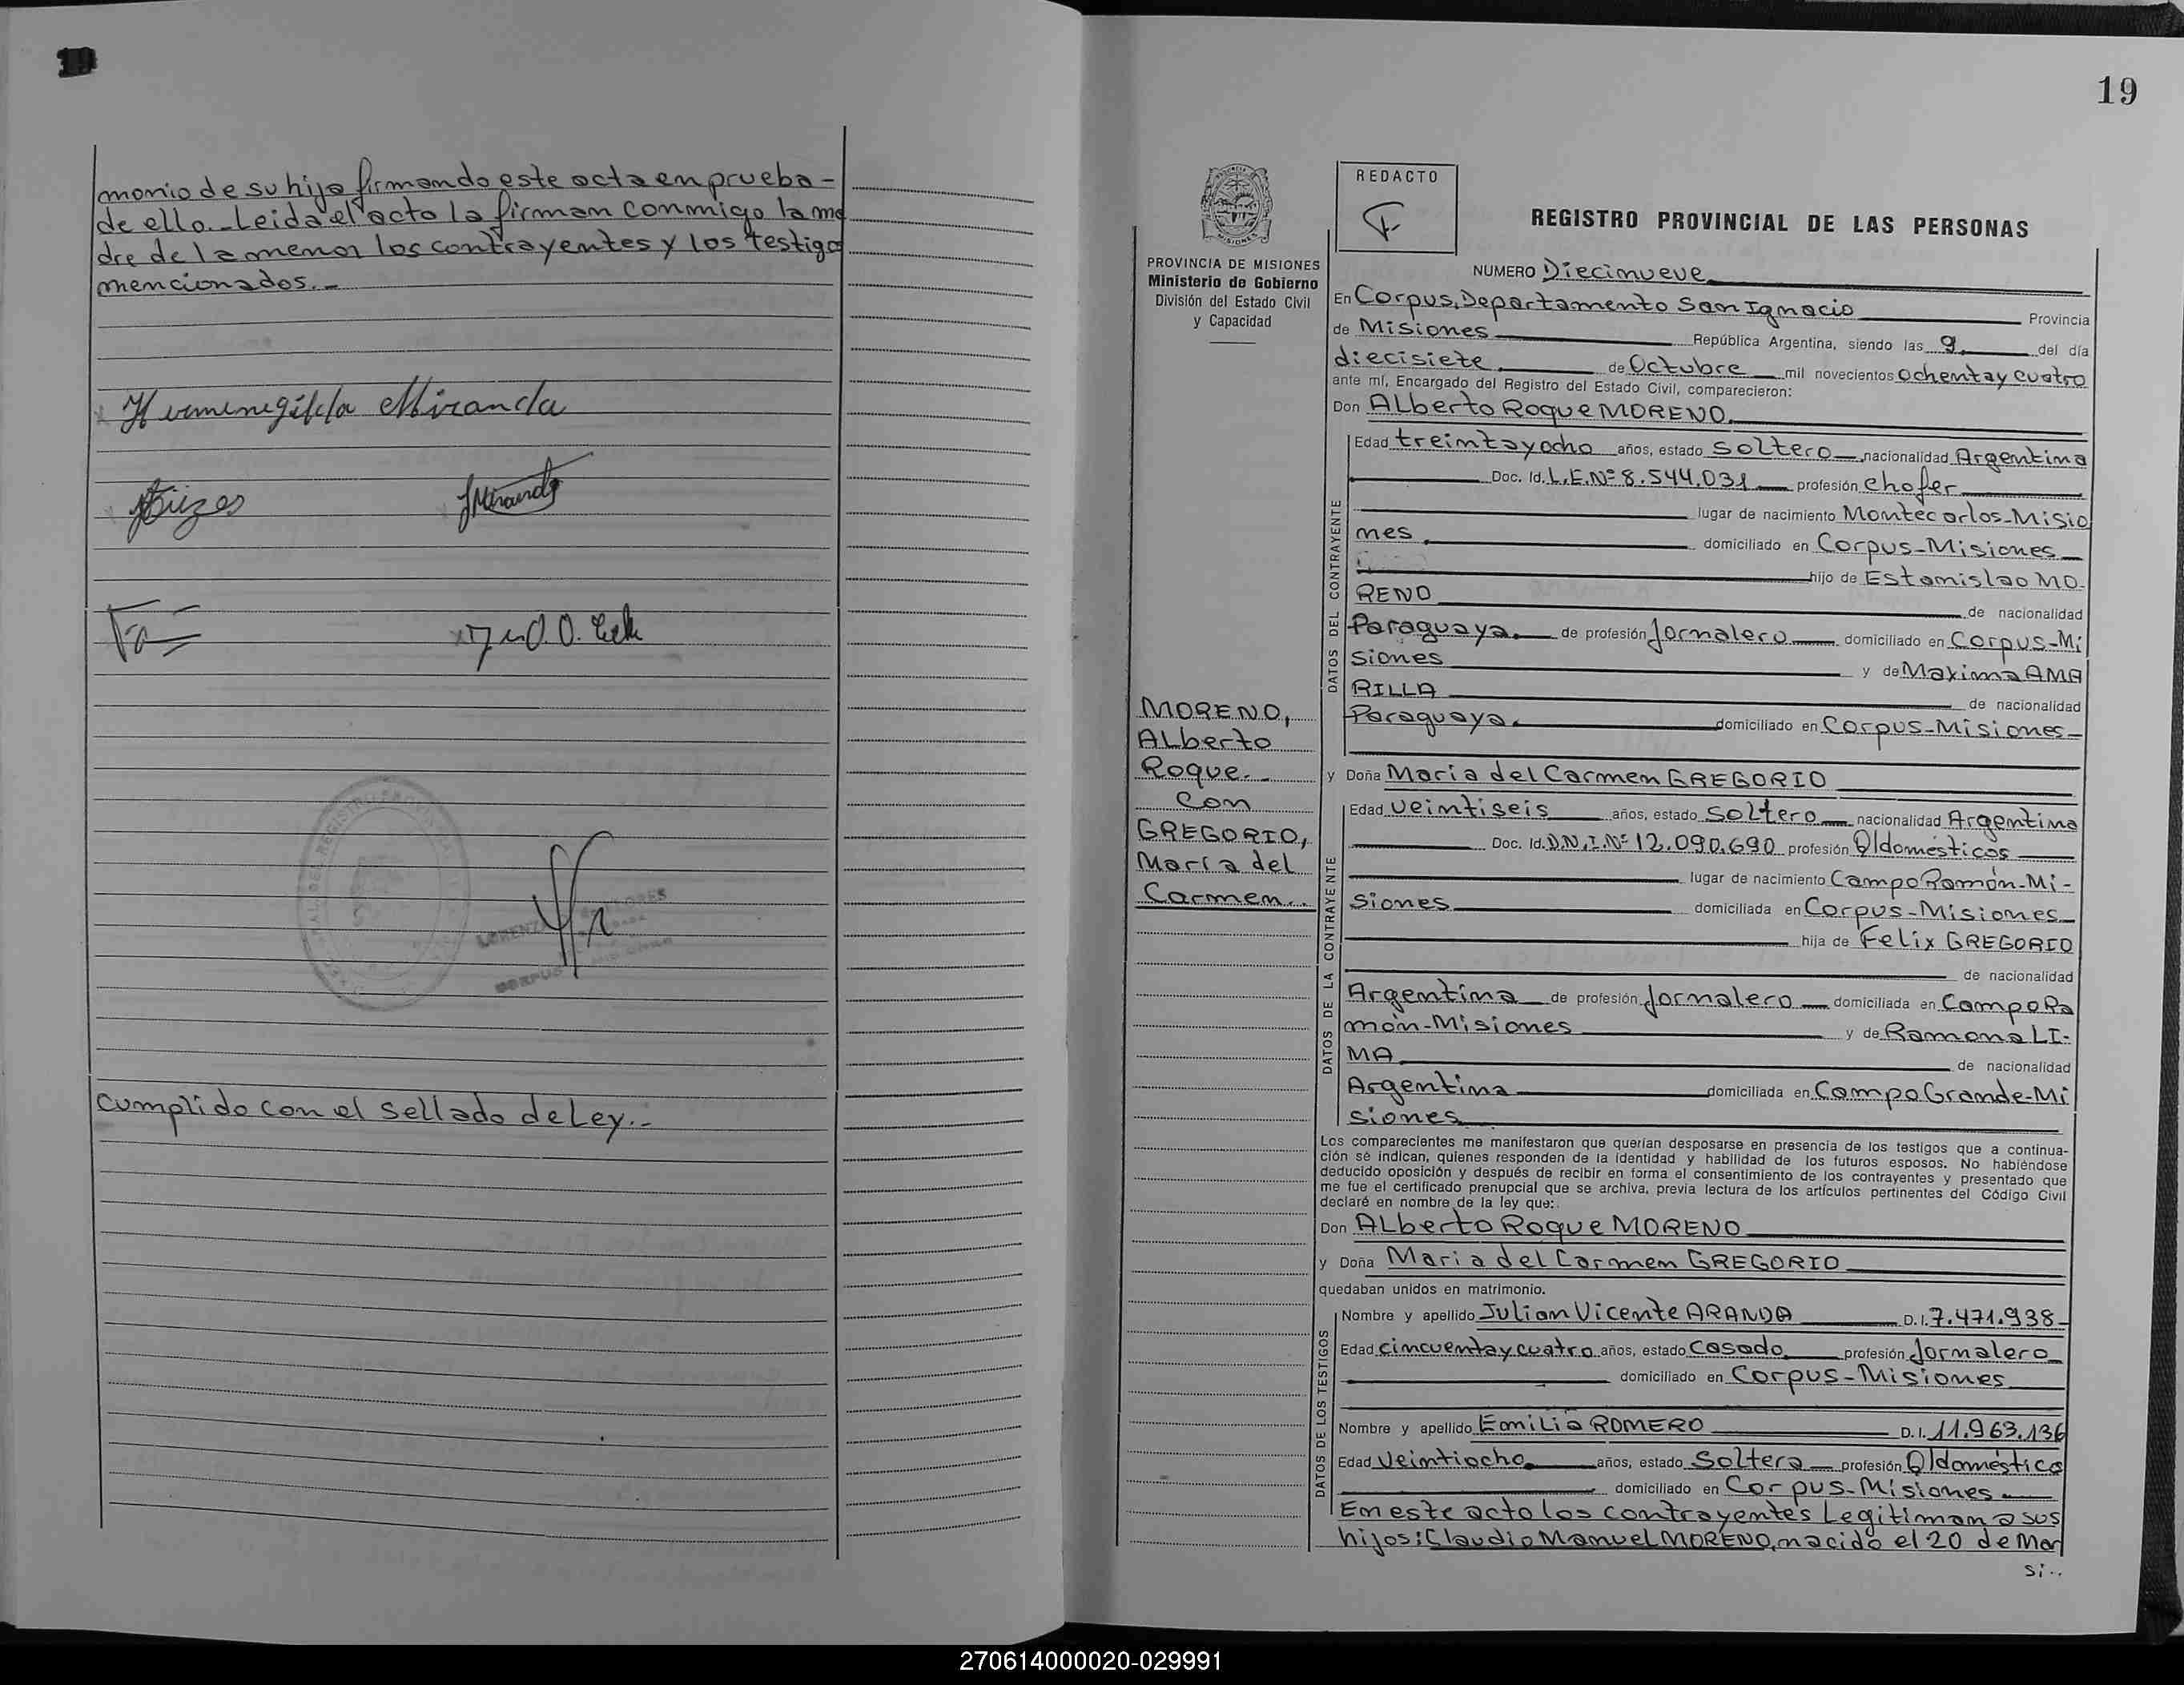 monio de su hija firmando este acta en prueba-
de ello.-Leida el acto la firman conmigo la ma
dre de la menor los contrayentes y los testigo
mencionados.-
Hermenegilda Miranda
JMiranda
cumplido con el sellado de Ley.-
19
REDACTO
REGISTRO PROVINCIAL DE LAS PERSONAS
PROVINCIA DE MISIONES
Ministerio de Gobierno
División del Estado Civil
y Capacidad
NUMERO Diecinueve
En Corpus, Departamento San Ignacio Provincia
de Misiones República Argentina, siendo las 9 del día
diecisiete de Octubre mil novecientos ochenta y cuatro
ante mí, Encargado del Registro del Estado Civil, comparecieron:
Don ALberto Roque MORENO
DATOS DEL CONTRAYENTE
Edad treinta y ocho años, estado Soltero nacionalidad Argentina
Doc. Id. L.E.Nº 8.544.031 profesión chofer
lugar de nacimiento Montecarlos-Misio
nes domiciliado en Corpus-Misiones
hijo de Estanislao MO-
RENO de nacionalidad
Paraguaya de profesión Jornalero domiciliado en Corpus-Mi
siones y de Maxima AMA
RILLA de nacionalidad
Paraguaya domiciliado en Corpus-Misiones-
MORENO,
ALberto
Roque.-
Con
GREGORIO,
María del
Carmen.-
y Doña Maria del Carmen GREGORIO
DATOS DE LA CONTRAYENTE
Edad veintiseis años, estado Soltero nacionalidad Argentina
Doc. Id. D.N.I.Nº 12.090.690 profesión Q/domésticos
lugar de nacimiento Campo Ramón-Mi-
siones domiciliada en Corpus-Misiones
hija de Felix GREGORIO
de nacionalidad
Argentina de profesión Jornalero domiciliada en Campo Ra
món-Misiones y de Ramona LI-
MA de nacionalidad
Argentina domiciliada en Campo Grande-Mi
siones
Los comparecientes me manifestaron que querían desposarse en presencia de los testigos que a continua-
ción se indican, quienes responden de la identidad y habilidad de los futuros esposos. No habiéndose
deducido oposición y después de recibir en forma el consentimiento de los contrayentes y presentado que
me fue el certificado prenupcial que se archiva, previa lectura de los artículos pertinentes del Código Civil
declaré en nombre de la ley que:
Don ALberto Roque MORENO
y Doña Maria del Carmen GREGORIO
quedaban unidos en matrimonio.
DATOS DE LOS TESTIGOS
Nombre y apellido Julian Vicente ARANDA D.I. 7.471.938
Edad cincuenta y cuatro años, estado Casado profesión Jornalero
domiciliado en Corpus-Misiones
Nombre y apellido Emilia ROMERO D.I. 11.963.136
Edad Veintiocho años, estado Soltera profesión Q/doméstico
domiciliado en Corpus-Misiones
En este acto los contrayentes Legitiman a sus
hijos: Claudio Manuel MORENO, nacido el 20 de Mar
si..
270614000020-029991